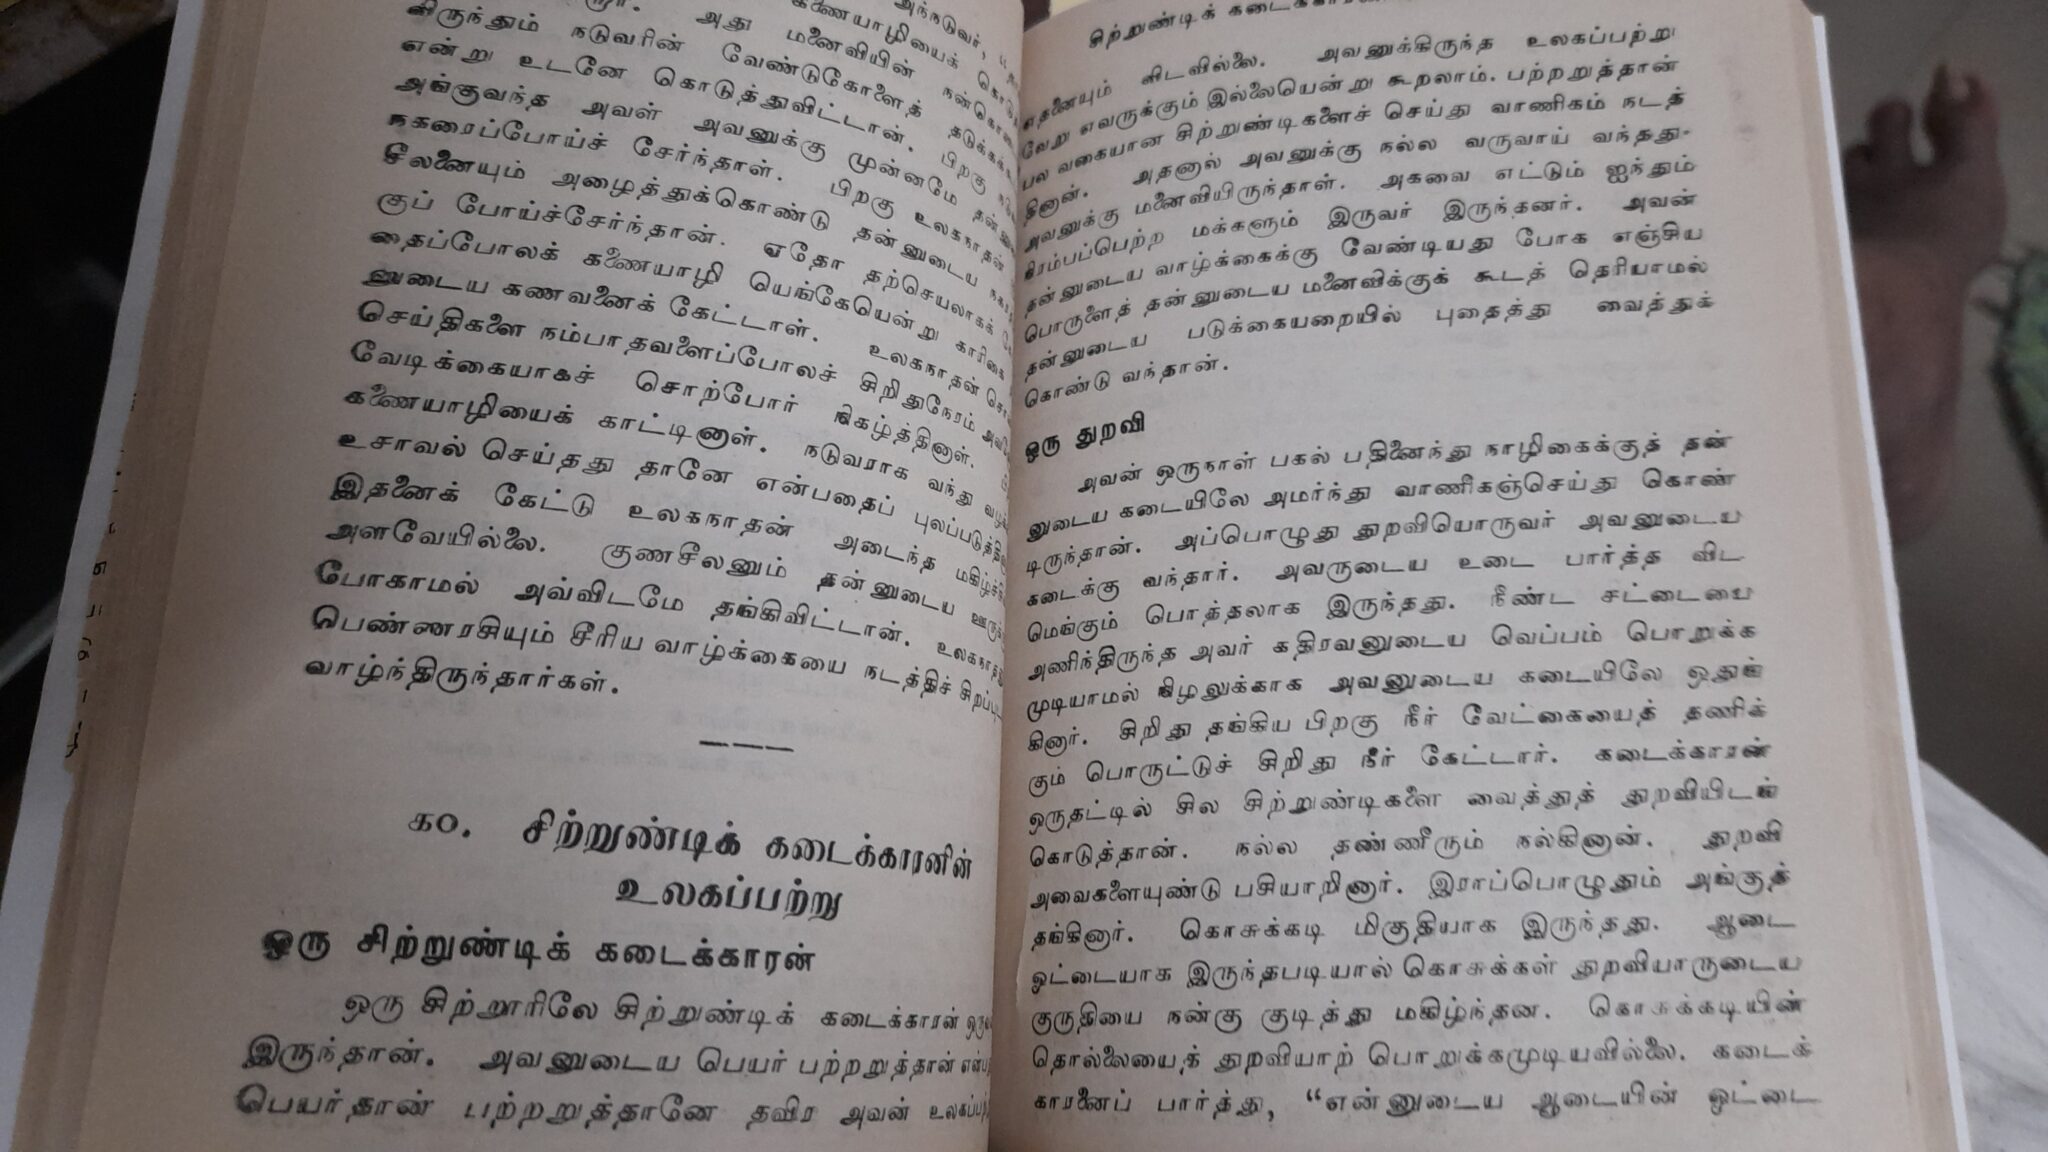 அந்நடுவர்,
கணையாழியைக்
விருந்தும் நடுவரின் வேண்டுகோளைத்
அது மனைவியின்
என்று உடனே கொடுத்துவிட்டான். பிறகு
அங்குவந்த அவள் அவனுக்கு முன்னமே
நகரைப்போய்ச் சேர்ந்தாள். பிறகு உலகநாதன்
சீலனையும் அழைத்துக்கொண்டு தன்னுடைய
குப் போய்ச்சேர்ந்தான். ஏதோ தற்செயலாகக்
தைப்போலக் கணையாழி யெங்கேயென்று காரிகை
னுடைய கணவனைக் கேட்டாள். உலகநாதன்
செய்திகளை நம்பாதவளைப்போலச் சிறிதுநேரம்
வேடிக்கையாகச் சொற்போர் நிகழ்த்தினாள்.
கணையாழியைக் காட்டினாள். நடுவராக வந்து
உசாவல் செய்தது தானே என்பதைப்
இதனைக் கேட்டு உலகநாதன் அடைந்த
அளவேயில்லை. குணசீலனும் தன்னுடைய
போகாமல் அவ்விடமே தங்கிவிட்டான்.
பெண்ணரசியும் சீரிய வாழ்க்கையை நடத்திச்
வாழ்ந்திருந்தார்கள்.
௧௦. சிற்றுண்டிக் கடைக்காரனின்
உலகப்பற்று
ஒரு சிற்றுண்டிக் கடைக்காரன்
ஒரு சிற்றூரிலே சிற்றுண்டிக் கடைக்காரன்
இருந்தான். அவனுடைய பெயர் பற்றறுத்தான்
பெயர்தான் பற்றறுத்தானே தவிர அவன்
சிற்றுண்டிக்
எதனையும் விடவில்லை. அவனுக்கிருந்த உலகப்பற்று
வேறு எவருக்கும் இல்லையென்று கூறலாம். பற்றறுத்தான்
பல வகையான சிற்றுண்டிகளைச் செய்து வாணிகம் நடத்
தினான். அதனால் அவனுக்கு நல்ல வருவாய் வந்தது.
அவனுக்கு மனைவியிருந்தாள். அகவை எட்டும் ஐந்தும்
நிரம்பப்பெற்ற மக்களும் இருவர் இருந்தனர். அவன்
தன்னுடைய வாழ்க்கைக்கு வேண்டியது போக எஞ்சிய
பொருளைத் தன்னுடைய மனைவிக்குக் கூடத் தெரியாமல்
தன்னுடைய படுக்கையறையில் புதைத்து வைத்துக்
கொண்டு வந்தான்.
ஒரு துறவி
அவன் ஒருநாள் பகல் பதினைந்து நாழிகைக்குத் தன்
னுடைய கடையிலே அமர்ந்து வாணிகஞ்செய்து கொண்
டிருந்தான். அப்பொழுது துறவியொருவர் அவனுடைய
கடைக்கு வந்தார். அவருடைய உடை பார்த்த விட
மெங்கும் பொத்தலாக இருந்தது. நீண்ட சட்டையை
அணிந்திருந்த அவர் கதிரவனுடைய வெப்பம் பொறுக்க
முடியாமல் நிழலுக்காக அவனுடைய கடையிலே ஒதுங்
கினார். சிறிது தங்கிய பிறகு நீர் வேட்கையைத் தணிக்
கும் பொருட்டுச் சிறிது நீர் கேட்டார். கடைக்காரன்
ஒருதட்டில் சில சிற்றுண்டிகளை வைத்துத் துறவியிடங்
கொடுத்தான். நல்ல தண்ணீரும் நல்கினான். துறவி
அவைகளையுண்டு பசியாறினார். இராப்பொழுதும் அங்குத்
தங்கினார். கொசுக்கடி மிகுதியாக இருந்தது. ஆடை
ஓட்டையாக இருந்தபடியால் கொசுக்கள் துறவியாருடைய
குருதியை நன்கு குடித்து மகிழ்ந்தன. கொசுக்கடியின்
தொல்லையைத் துறவியாற் பொறுக்கமுடியவில்லை. கடைக்
காரனைப் பார்த்து, “என்னுடைய ஆடையின் ஓட்டை